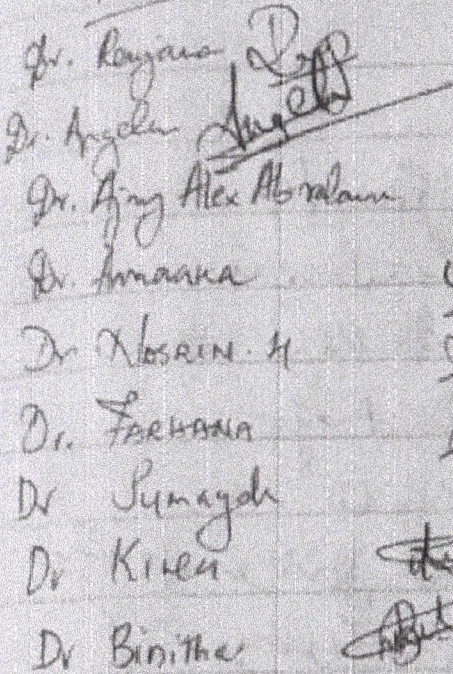 Dr. Ranjana
Dr. Angela Angela
Dr. Ajay Alex Abraham
Dr.
Dr NOSRIN. H
Dr. FARHANA
Dr Sumayah
Dr Kiren
Dr Binitha